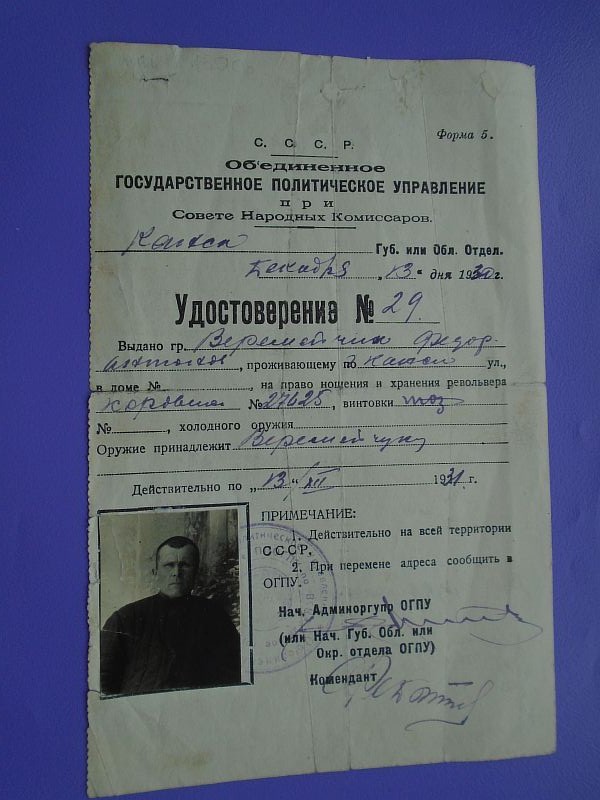 Форма 5.
С. С. С. Р.
Объединенное
ГОСУДАРСТВЕННОЕ ПОЛИТИЧЕСКОЕ УПРАВЛЕНИЕ
при
Совете Народных Комиссаров.
Губ. или Обл. Отдел.
Декабря „13" дня 1930 г.
Удостоверение № 29.
Выдано гр. Веремейчик Федор
, проживающему по ул.,
в доме № , на право ношения и хранения револьвера
№ 27625, винтовки
№ , холодного оружия
Оружие принадлежит Веремейчуку
Действительно по „13" XII 1931 г.
ПРИМЕЧАНИЕ:
1. Действительно на всей территории
СССР.
2. При перемене адреса сообщить в
ОГПУ.
Нач. Админоргупр ОГПУ
(или Нач. Губ. Обл. или
( Окр. отдела ОГПУ)
Комендант